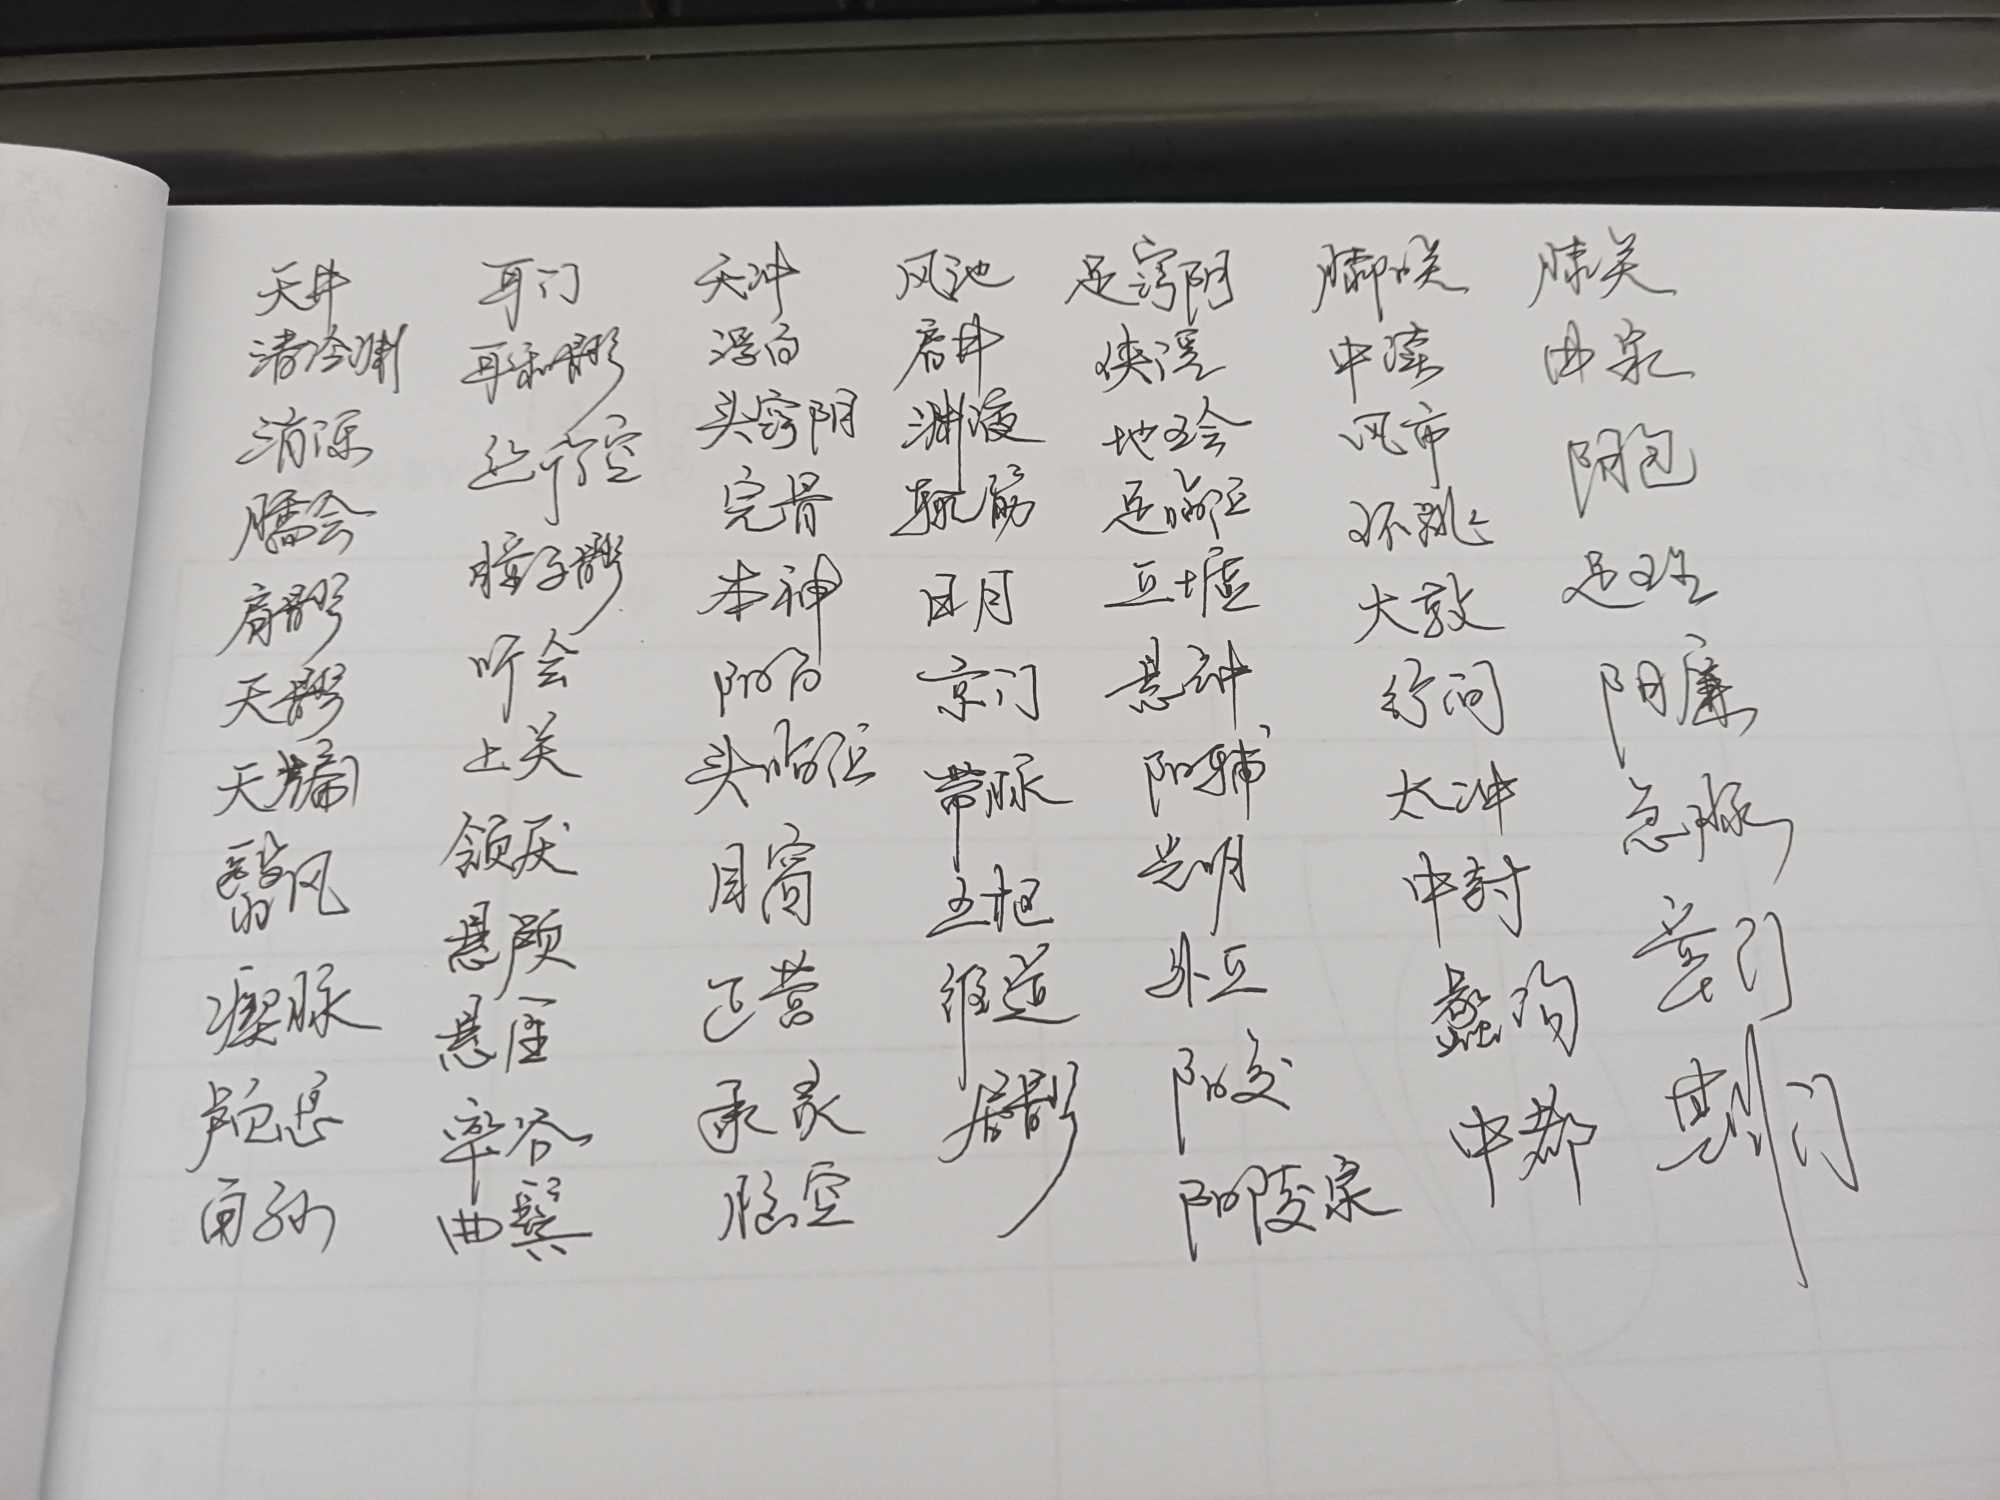 天井
清冷渊
消泺
臑会
肩髎
天髎
天牖
翳风
瘈脉
颅息
角孙
耳门
耳和髎
丝竹空
瞳子髎
听会
上关
颔厌
悬颅
悬厘
率谷
曲鬓
天冲
浮白
头窍阴
完骨
本神
阳白
头临泣
目窗
正营
承灵
脑空
风池
肩井
渊液
辄筋
日月
京门
带脉
五枢
维道
居髎
足窍阴
侠溪
地五会
足临泣
丘墟
悬钟
阳辅
光明
外丘
阳交
阳陵泉
膝阳关
中渎
风市
环跳
大敦
行间
太冲
中封
蠡沟
中都
膝关
曲泉
阴包
足五里
阴廉
急脉
章门
期门